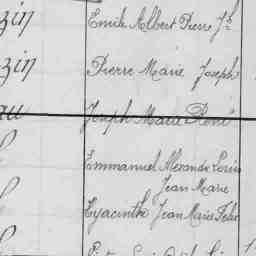 zin Emile Albert Pierre Jh
zin Pierre Marie Joseph
au Joseph Marie René
Emmanuel Alexandre Louis
Jean Marie
Hyacinthe Jean Marie Felix